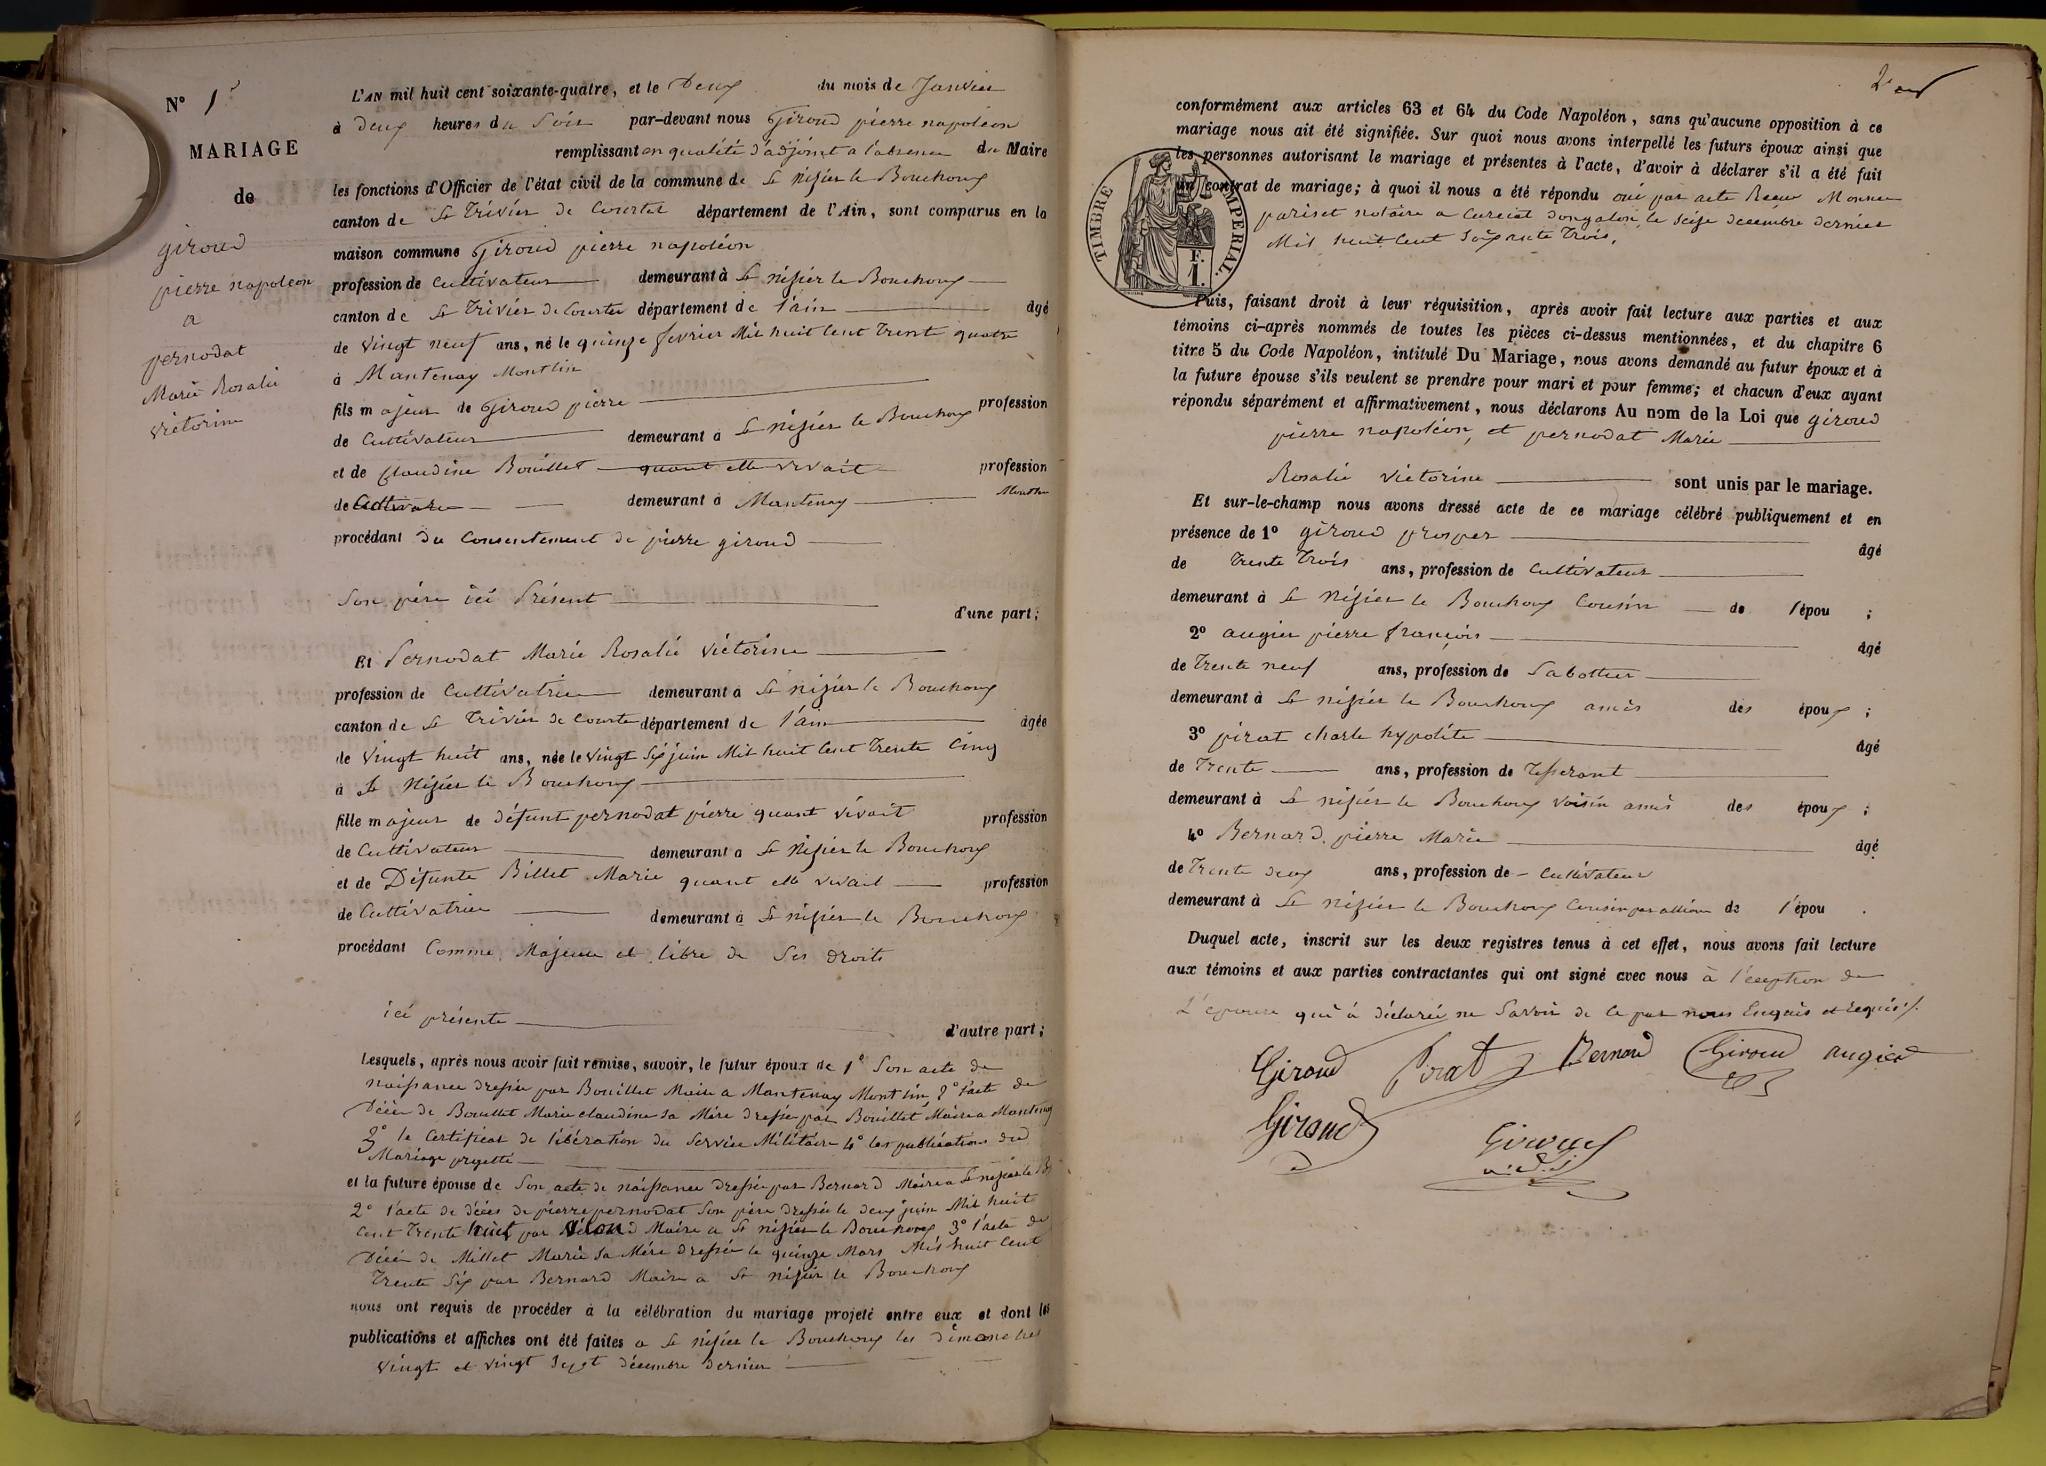 N° 1
MARIAGE
de
giroud
pierre napoléon
a
pernodat
Marie Rosalie
victorine
L'AN mil huit cent soixante-quatre, et le Deux du mois de Janvier
à deux heures du Soir par-devant nous Giroud pierre napoléon
remplissant en qualité d'adjoint a l'absence du Maire
les fonctions d'Officier de l'état civil de la commune de St Nizier le Bouchoux
canton de St Trivier de Courtes département de l'Ain, sont comparus en la
maison commune Giroud pierre napoléon
profession de Cultivateur demeurant à St nizier le Bouchoux
canton de St Trivier de Courtes département de l'ain âgé
de Vingt neuf ans, né le quinze fevrier Mil huit Cent Trent quatre
à Mantenay Montlin
fils majeur de Giroud pierre profession
de Cultivateur demeurant à St nizier le Bouchoux
et de Claudine Bouillet quant elle vivait profession
de demeurant à Mantenay Montlin
procédant du Consentement de pierre giroud
Son père ici Présent d'une part;
Et Pernodat Marie Rosalie Victorine
profession de Cultivatrice demeurant à St nizier le Bouchoux
canton de St Trivier de Courtes département de l'ain âgée
de Vingt huit ans, née le Vingt Six juin Mil huit Cent Trente Cinq
à St Nizier le Bouchoux
fille majeur de défunt pernodat pierre quant vivait profession
de Cultivateur demeurant à St Nizier le Bouchoux
et de Défunte Billet Marie quant elle vivait profession
de Cultivatrice demeurant à St nizier le Bouchoux
procédant Comme Majeure et libre de Ses droits
ici présente d'autre part;
Lesquels, après nous avoir fait remise, savoir, le futur époux de 1° Son acte de
naissance dressée par Bouillet Maire a Mantenay Montlin 2° l'acte de
Décès de Bouillet Marie claudine sa Mère dressée par Bouillet Maire a Mantenay
3° le Certificat de libération du Service Militaire 4° les publications du
Mariage projetté
et la future épouse de Son acte de naissance dressée par Bernard Maire a St nizier le B
2° l'acte de décès de pierre pernodat Son père dressée le deux juin Mil huit
Cent Trente huit par Maire a St nizier le Bouchoux 3° l'acte de
Décès de Millet Marie sa Mère dressée le quinze Mars Mil huit Cent
Trente Six par Bernard Maire a St nizier le Bouchoux
nous ont requis de procéder à la célébration du mariage projeté entre eux et dont les
publications et affiches ont été faites a St nizier le Bouchoux les dimanches
Vingt et vingt Sept décembre dernier
conformément aux articles 63 et 64 du Code Napoléon, sans qu'aucune opposition à ce
mariage nous ait été signifiée. Sur quoi nous avons interpellé les futurs époux ainsi que
les personnes autorisant le mariage et présentes à l'acte, d'avoir à déclarer s'il a été fait
un contrat de mariage; à quoi il nous a été répondu oui par acte Reçu
pariset notaire a Curciat dongalon le Seize decembre dernier
Mil huit Cent Soixante Trois,
TIMBRE IMPERIAL.
1 F.
Puis, faisant droit à leur réquisition, après avoir fait lecture aux parties et aux
témoins ci-après nommés de toutes les pièces ci-dessus mentionnées, et du chapitre 6
titre 5 du Code Napoléon, intitulé Du Mariage, nous avons demandé au futur époux et à
la future épouse s'ils veulent se prendre pour mari et pour femme; et chacun d'eux ayant
répondu séparément et affirmativement, nous déclarons Au nom de la Loi que giroud
pierre napoléon, et pernodat Marie
Rosalie Victorine sont unis par le mariage.
Et sur-le-champ nous avons dressé acte de ce mariage célébré publiquement et en
présence de 1° giroud prosper âgé
de Trente Trois ans, profession de Cultivateur
demeurant à St Nizier le Bouchoux Cousin de l'épou ;
2° augier pierre françois âgé
de Trente neuf ans, profession de Sabottier
demeurant à St nizier le Bouchoux amis des époux ;
3° pirat charle hypolite âgé
de Trente ans, profession de Tisserant
demeurant à St nizier le Bouchoux Voisin amis des époux ;
4° Bernard pierre Marie âgé
de Trente deux ans, profession de Cultivateur
demeurant à St nizier le Bouchoux Cousin par alliance de l'épou .
Duquel acte, inscrit sur les deux registres tenus à cet effet, nous avons fait lecture
aux témoins et aux parties contractantes qui ont signé avec nous à l'éception de
L'épouse qui à déclarée ne Savoir de ce par nous Enquis et requis
Giroud Pirat Bernard Giroud augier
Giroud Giroud